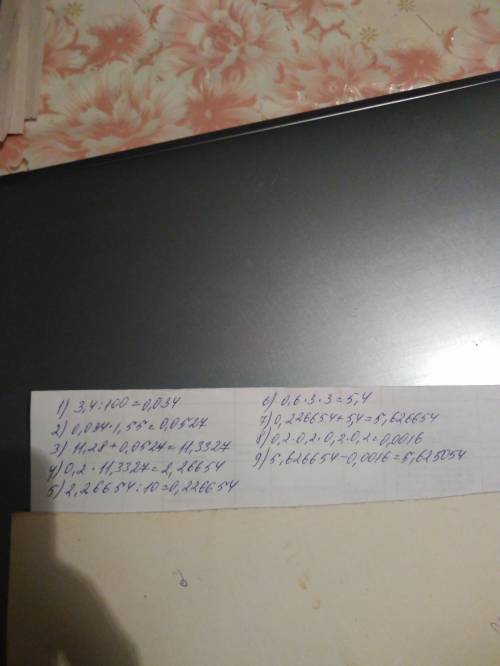 1) 3,4:100=0,034
2) 0,034·1,55=0,0527
3) 11,28+0,0527=11,3327
4) 0,2·11,3327=2,26654
5) 2,26654:10=0,226654
6) 0,6·3·3=5,4
7) 0,226654+5,4=5,626654
8) 0,2·0,2·0,2·0,2=0,0016
9) 5,626654-0,0016=5,625054